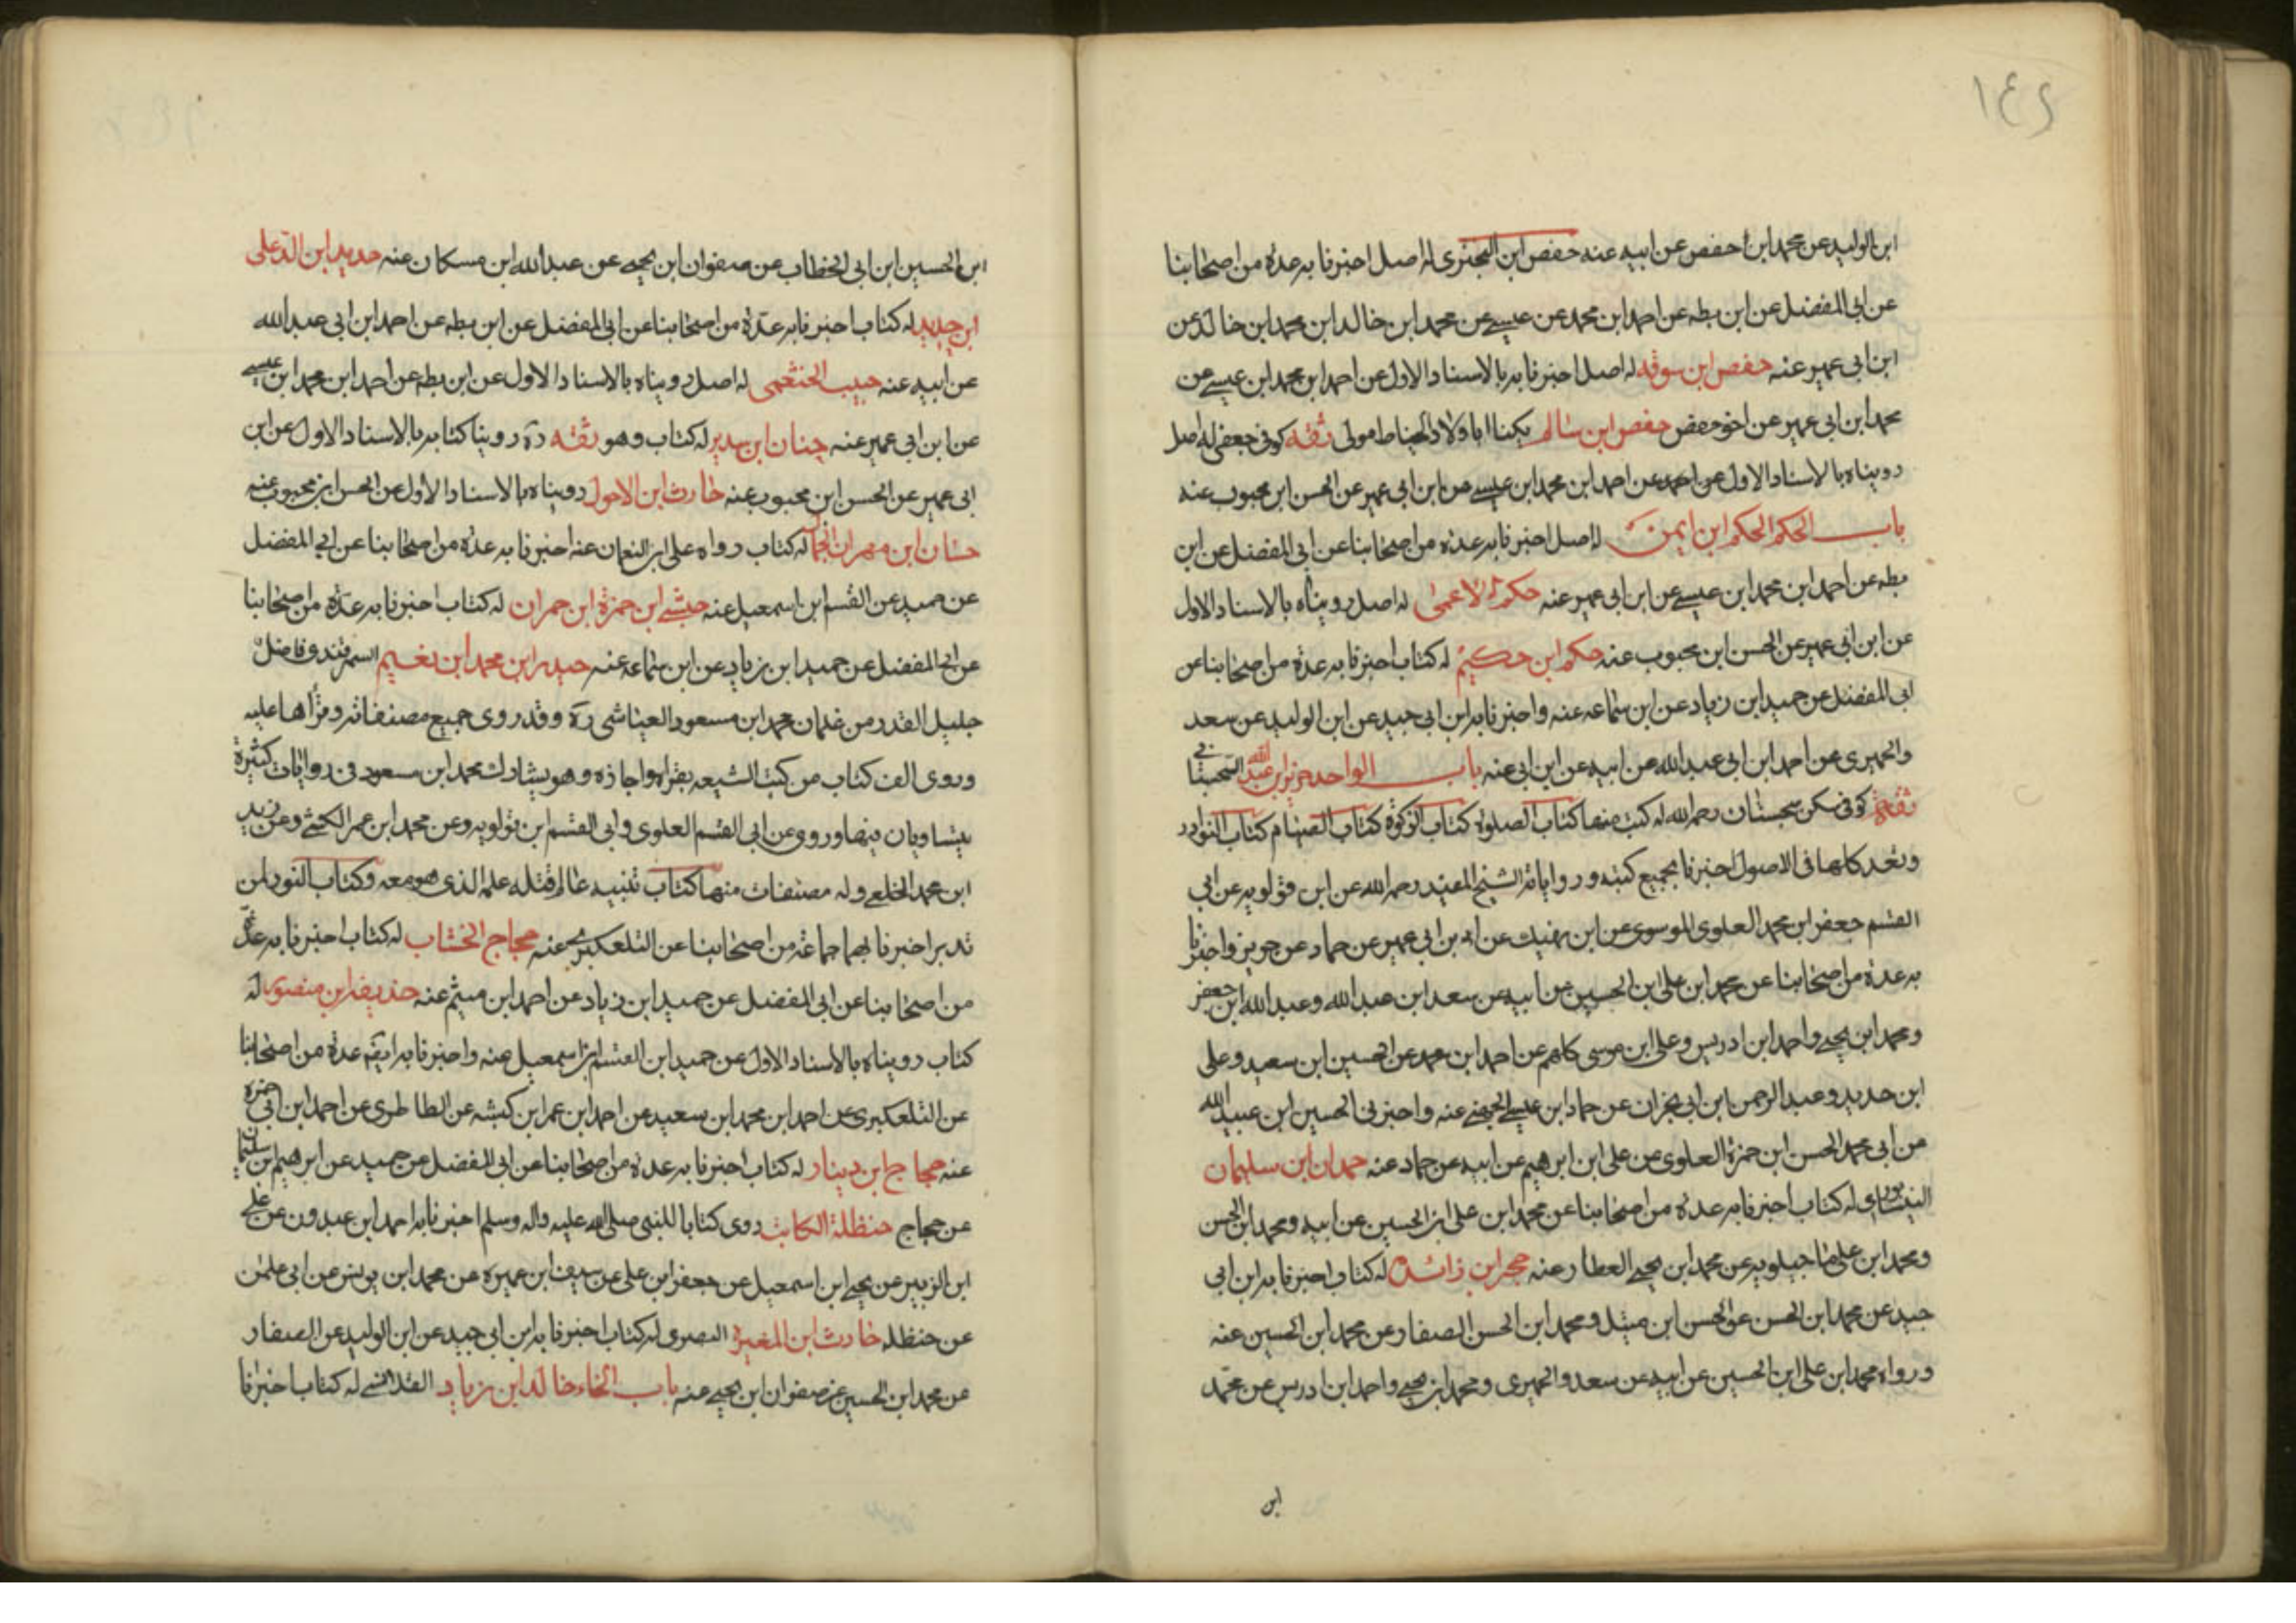 ١٤٢
ابن الوليد عن محمد ابن حفص عن ابيه عنه حفص ابن البختري له اصل اخبرنا به عدة من اصحابنا
عن ابي المفضل عن ابن بطه عن احمد ابن محمد عن عيسى عن محمد ابن خالد ابن محمد ابن خالد عن
ابن ابي عمير عنه حفص ابن سوقه له اصل اخبرنا به بالاسناد الاول عن احمد ابن محمد ابن عيسى عن
محمد ابن ابي عمير عن اخو حفص حفص ابن سالم يكنا ابا ولاد الحناط مولى ثقه كوفي جعفي له اصل
رويناه بالاسناد الاول عن احمد عن احمد ابن محمد ابن عيسى عن ابن ابي عمير عن الحسن ابن محبوب عنه
باب الحكم الحكم ابن ايمن له اصل اخبرنا به عدة من اصحابنا عن ابي المفضل عن ابن
بطه عن احمد ابن محمد ابن عيسى عن ابن ابي عمير عنه حكم الاعمى له اصل رويناه بالاسناد الاول
عن ابن ابي عمير عن الحسن ابن محبوب عنه حكم ابن حكيم له كتاب اخبرنا به عدة من اصحابنا عن
ابي المفضل عن حميد ابن زياد عن ابن سماعه عنه واخبرنا به ابن ابي جيد عن ابن الوليد عن سعد
والحميري عن احمد ابن ابي عبد الله عن ابيه عن ابن ابي عنه باب الواحد حريز ابن عبد الله السجستاني
ثقة كوفي سكن سجستان رحمه الله له كتب منها كتاب الصلوة كتاب الزكوة كتاب الصيام كتاب النوادر
وتعد كلها في الاصول اخبرنا بجميع كتبه ورواياته الشيخ المفيد رحمه الله عن ابن قولويه عن ابي
القسم جعفر ابن محمد العلوي الموسوي عن ابن نهيك عن ابن ابي عمير عن حماد عن حريز واخبرنا
به عدة من اصحابنا عن محمد ابن علي ابن الحسين عن ابيه عن سعد ابن عبد الله وعبد الله ابن جعفر
ومحمد ابن يحيى واحمد ابن ادريس وعلي ابن موسى كلهم عن احمد ابن محمد عن الحسين ابن سعيد وعلي
ابن حديد وعبد الرحمن ابن ابي نجران عن حماد ابن عيسى الجهني عنه واخبرني الحسين ابن عبيد الله
عن ابي محمد الحسن ابن حمزة العلوي عن علي ابن ابرهيم عن ابيه عن حماد عنه حمدان ابن سليمان
النيشابوري له كتاب اخبرنا به عدة من اصحابنا عن محمد ابن علي ابن الحسين عن ابيه ومحمد ابن الحسن
ومحمد ابن علي ماجيلويه عن محمد ابن يحيى العطار عنه حجر ابن زائدة له كتاب اخبرنا به ابن ابي
جيد عن محمد ابن الحسن عن الحسن ابن متيل ومحمد ابن الحسن الصفار عن محمد ابن الحسين عنه
ورواه محمد ابن علي ابن الحسين عن ابيه عن سعد والحميري ومحمد ابن يحيى واحمد ابن ادريس عن محمد
ابن
ابن الحسين ابن ابي الخطاب عن صفوان ابن يحيى عن عبد الله ابن مسكان عنه حديد ابن
ابن حديد له كتاب اخبرنا به عدة من اصحابنا عن ابي المفضل عن ابن بطه عن احمد ابن ابي عبد الله
عن ابيه عنه حبيب الخثعمي له اصل رويناه بالاسناد الاول عن ابن بطه عن احمد ابن محمد ابن عيسى
عن ابن ابي عمير عنه حنان ابن سدير له كتاب وهو ثقه ره روينا كتابه بالاسناد الاول عن ابن
ابي عمير عن الحسن ابن محبوب عنه حارث ابن الاحول رويناه بالاسناد الاول عن الحسن ابن محبوب عنه
حسان ابن مهران الجمال له كتاب رواه علي ابن النعمان عنه اخبرنا به عدة من اصحابنا عن ابي المفضل
عن حميد عن القسم ابن اسمعيل عنه حبشي ابن حمزة ابن حمران له كتاب اخبرنا به عدة من اصحابنا
عن ابي المفضل عن حميد ابن زياد عن ابن سماعه عنه حيدر ابن محمد ابن نعيم السمرقندي فاضل
جليل القدر من غلمان محمد ابن مسعود العياشي ره وقد روى جميع مصنفاته وقرأها عليه
وروى الف كتاب من كتب الشيعه بقراه واجازه وهو يشارك محمد ابن مسعود في روايات كثيرة
يتساويان فيها وروى عن ابي القسم العلوي وابي القسم ابن قولويه وعن محمد ابن عمر الكشي وعن زيد
ابن محمد الخلعي وله مصنفات منها كتاب تنبيه عالم قتله علمه الذي هو معه وكتاب النور لمن
تدبر اخبرنا بهما جماعة من اصحابنا عن التلعكبري عنه حجاج الخشاب له كتاب اخبرنا به عدة
من اصحابنا عن ابي المفضل عن حميد ابن زياد عن احمد ابن ميثم عنه حذيفه ابن منصور له
كتاب رويناه بالاسناد الاول عن حميد ابن القسم ابن اسمعيل عنه واخبرنا به ايضه عدة من اصحابنا
عن التلعكبري عن احمد ابن محمد ابن سعيد عن احمد ابن عمر ابن كبشه عن الطاطري عن احمد ابن ابي حمزه
عنه حجاج ابن دينار له كتاب اخبرنا به عدة من اصحابنا عن ابي المفضل عن حميد عن ابرهيم ابن سليمان
عن حجاج حنظلة الكاتب روى كتابا للنبي صلى الله عليه واله وسلم اخبرنا به احمد ابن عبدون عن علي
ابن الزبير عن يحيى ابن اسمعيل عن جعفر ابن علي عن سيف ابن عميره عن محمد ابن يونس عن ابي عثمن
عن حنظله حارث ابن المغيرة النصري له كتاب اخبرنا به ابن ابي جيد عن ابن الوليد عن الصفار
عن محمد ابن الحسين عن صفوان ابن يحيى عنه باب الخاء خالد ابن زياد القلانسي له كتاب اخبرنا